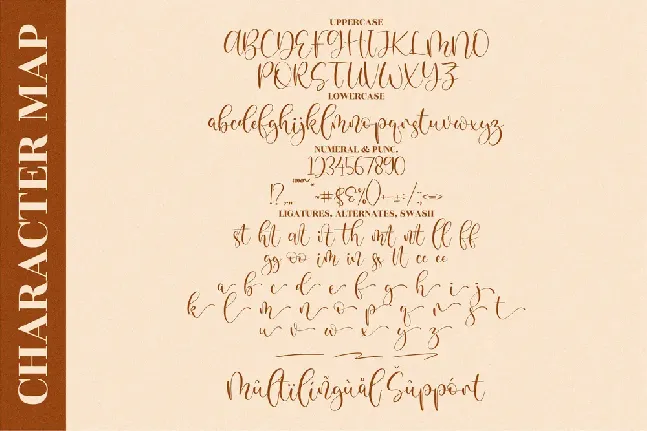 CHARACTER MAP
UPPERCASE
ABCDEFGHIJKLMNO
PQRSTUVWXYZ
LOWERCASE
abcdefghijklmnopqrstuvwxyz
NUMERAL & PUNC.
1234567890
LIGATURES, ALTERNATES, SWASH
st ht at it th mt nt ll ff
gg oo im in ss
a b c d e f g h i j
k l m n o p q r s t
u v w x y z
Mûltilïñgùål Šûppórt